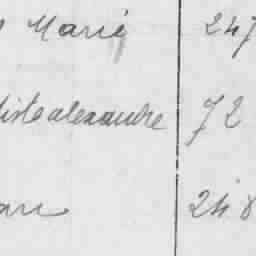 Marie 247
liste alexandre 72
248